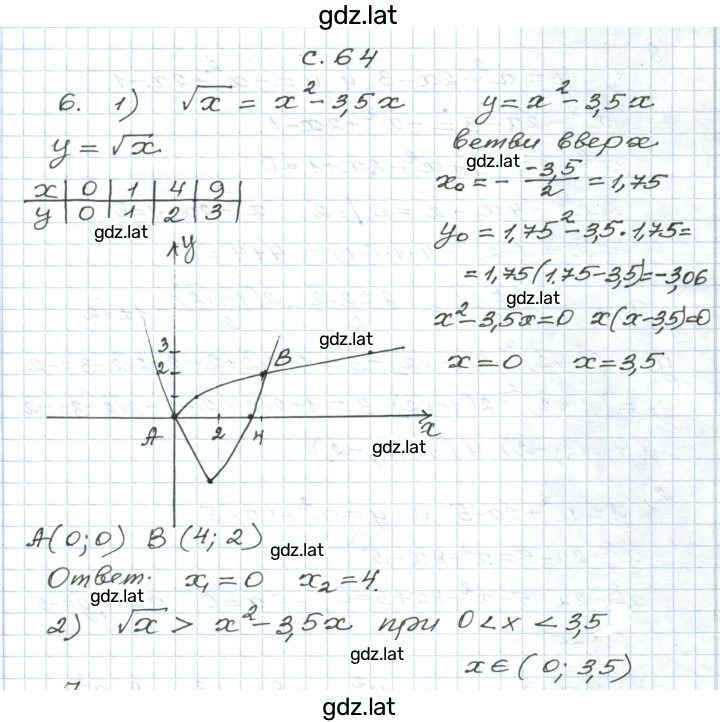 gdz.lat
с. 64
6. 1) √x = x² - 3,5x
y = √x
x | 0 | 1 | 4 | 9 |
y | 0 | 1 | 2 | 3 |
gdz.lat
y = x² - 3,5x
ветви вверх
gdz.lat
x₀ = - -3,5/2 = 1,75
y₀ = 1,75² - 3,5 · 1,75 =
= 1,75(1.75-3,5) = -3,06
gdz.lat
x² - 3,5x = 0 x(x-3,5)=0
x = 0 x = 3,5
y
gdz.lat
3
2
B
A
2
4
x
gdz.lat
A(0;0) B(4;2)
gdz.lat
Ответ. x₁ = 0 x₂ = 4.
gdz.lat
2) √x > x² - 3,5x при 0 < x < 3,5
gdz.lat
x ∈ (0; 3,5)
gdz.lat